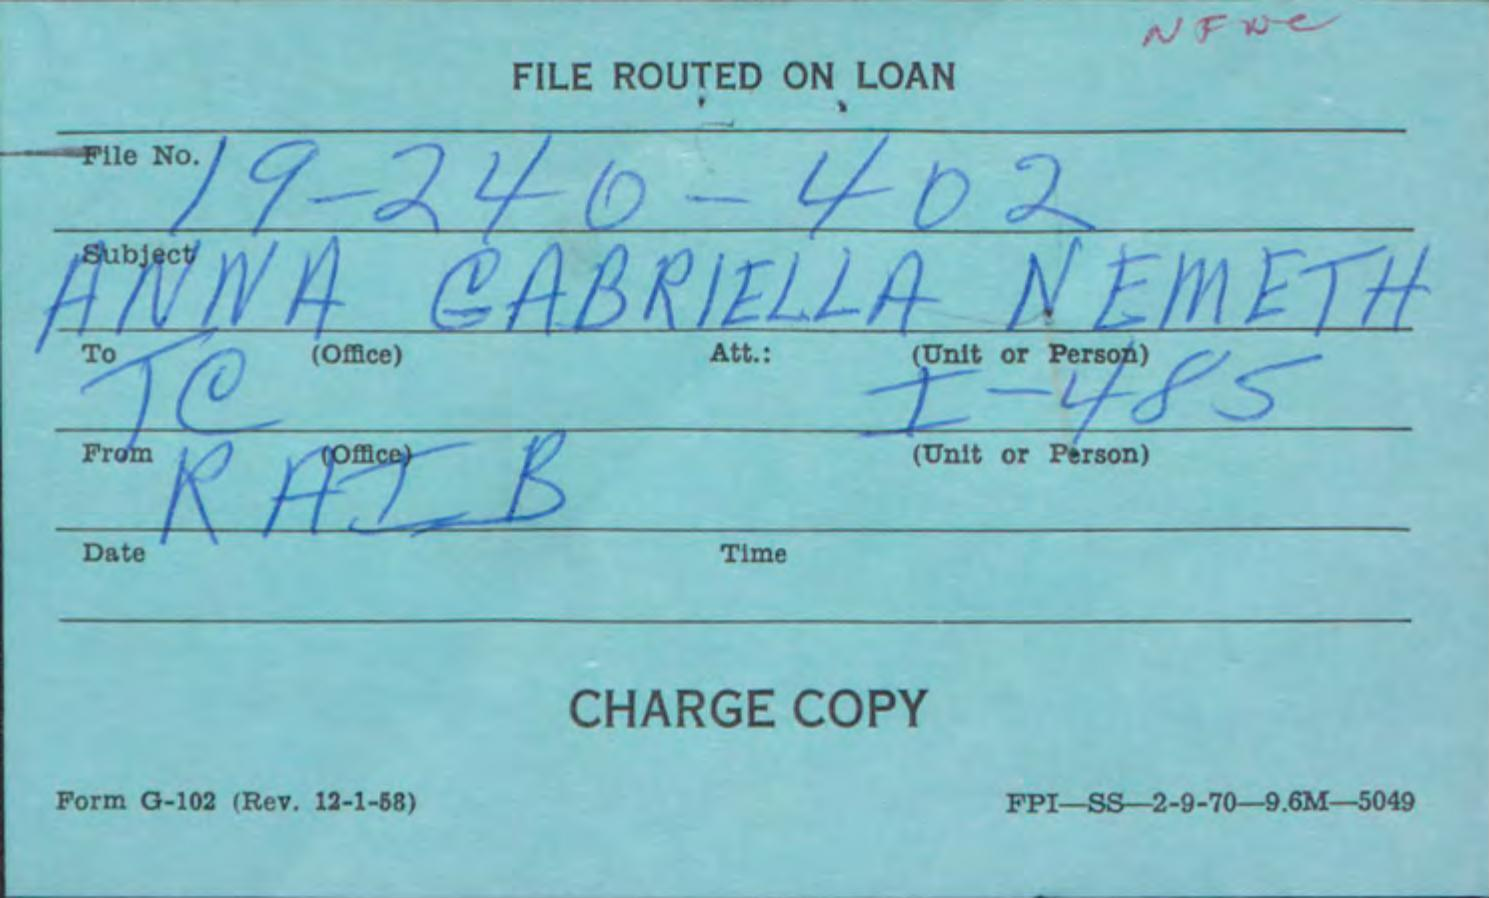 NFWC
FILE ROUTED ON LOAN
File No. 19-240-402
Subject ANNA GABRIELLA NEMETH
To (Office) Att.: (Unit or Person)
TC I-485
From (Office) (Unit or Person)
RAIB
Date Time
CHARGE COPY
Form G-102 (Rev. 12-1-58) FPI—SS—2-9-70—9.6M—5049